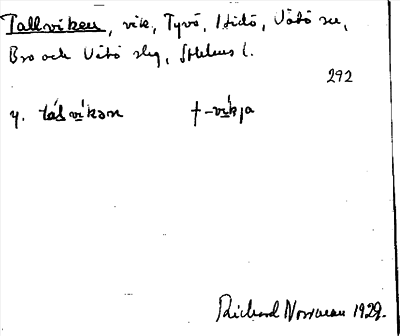 Tallviken, vik, Tyvö, Hidö, Vätö sn,
Bro och Vätö slg, Sthlms l.
292
y. tálvíkən t-víkja
Richard Norrman 1929.